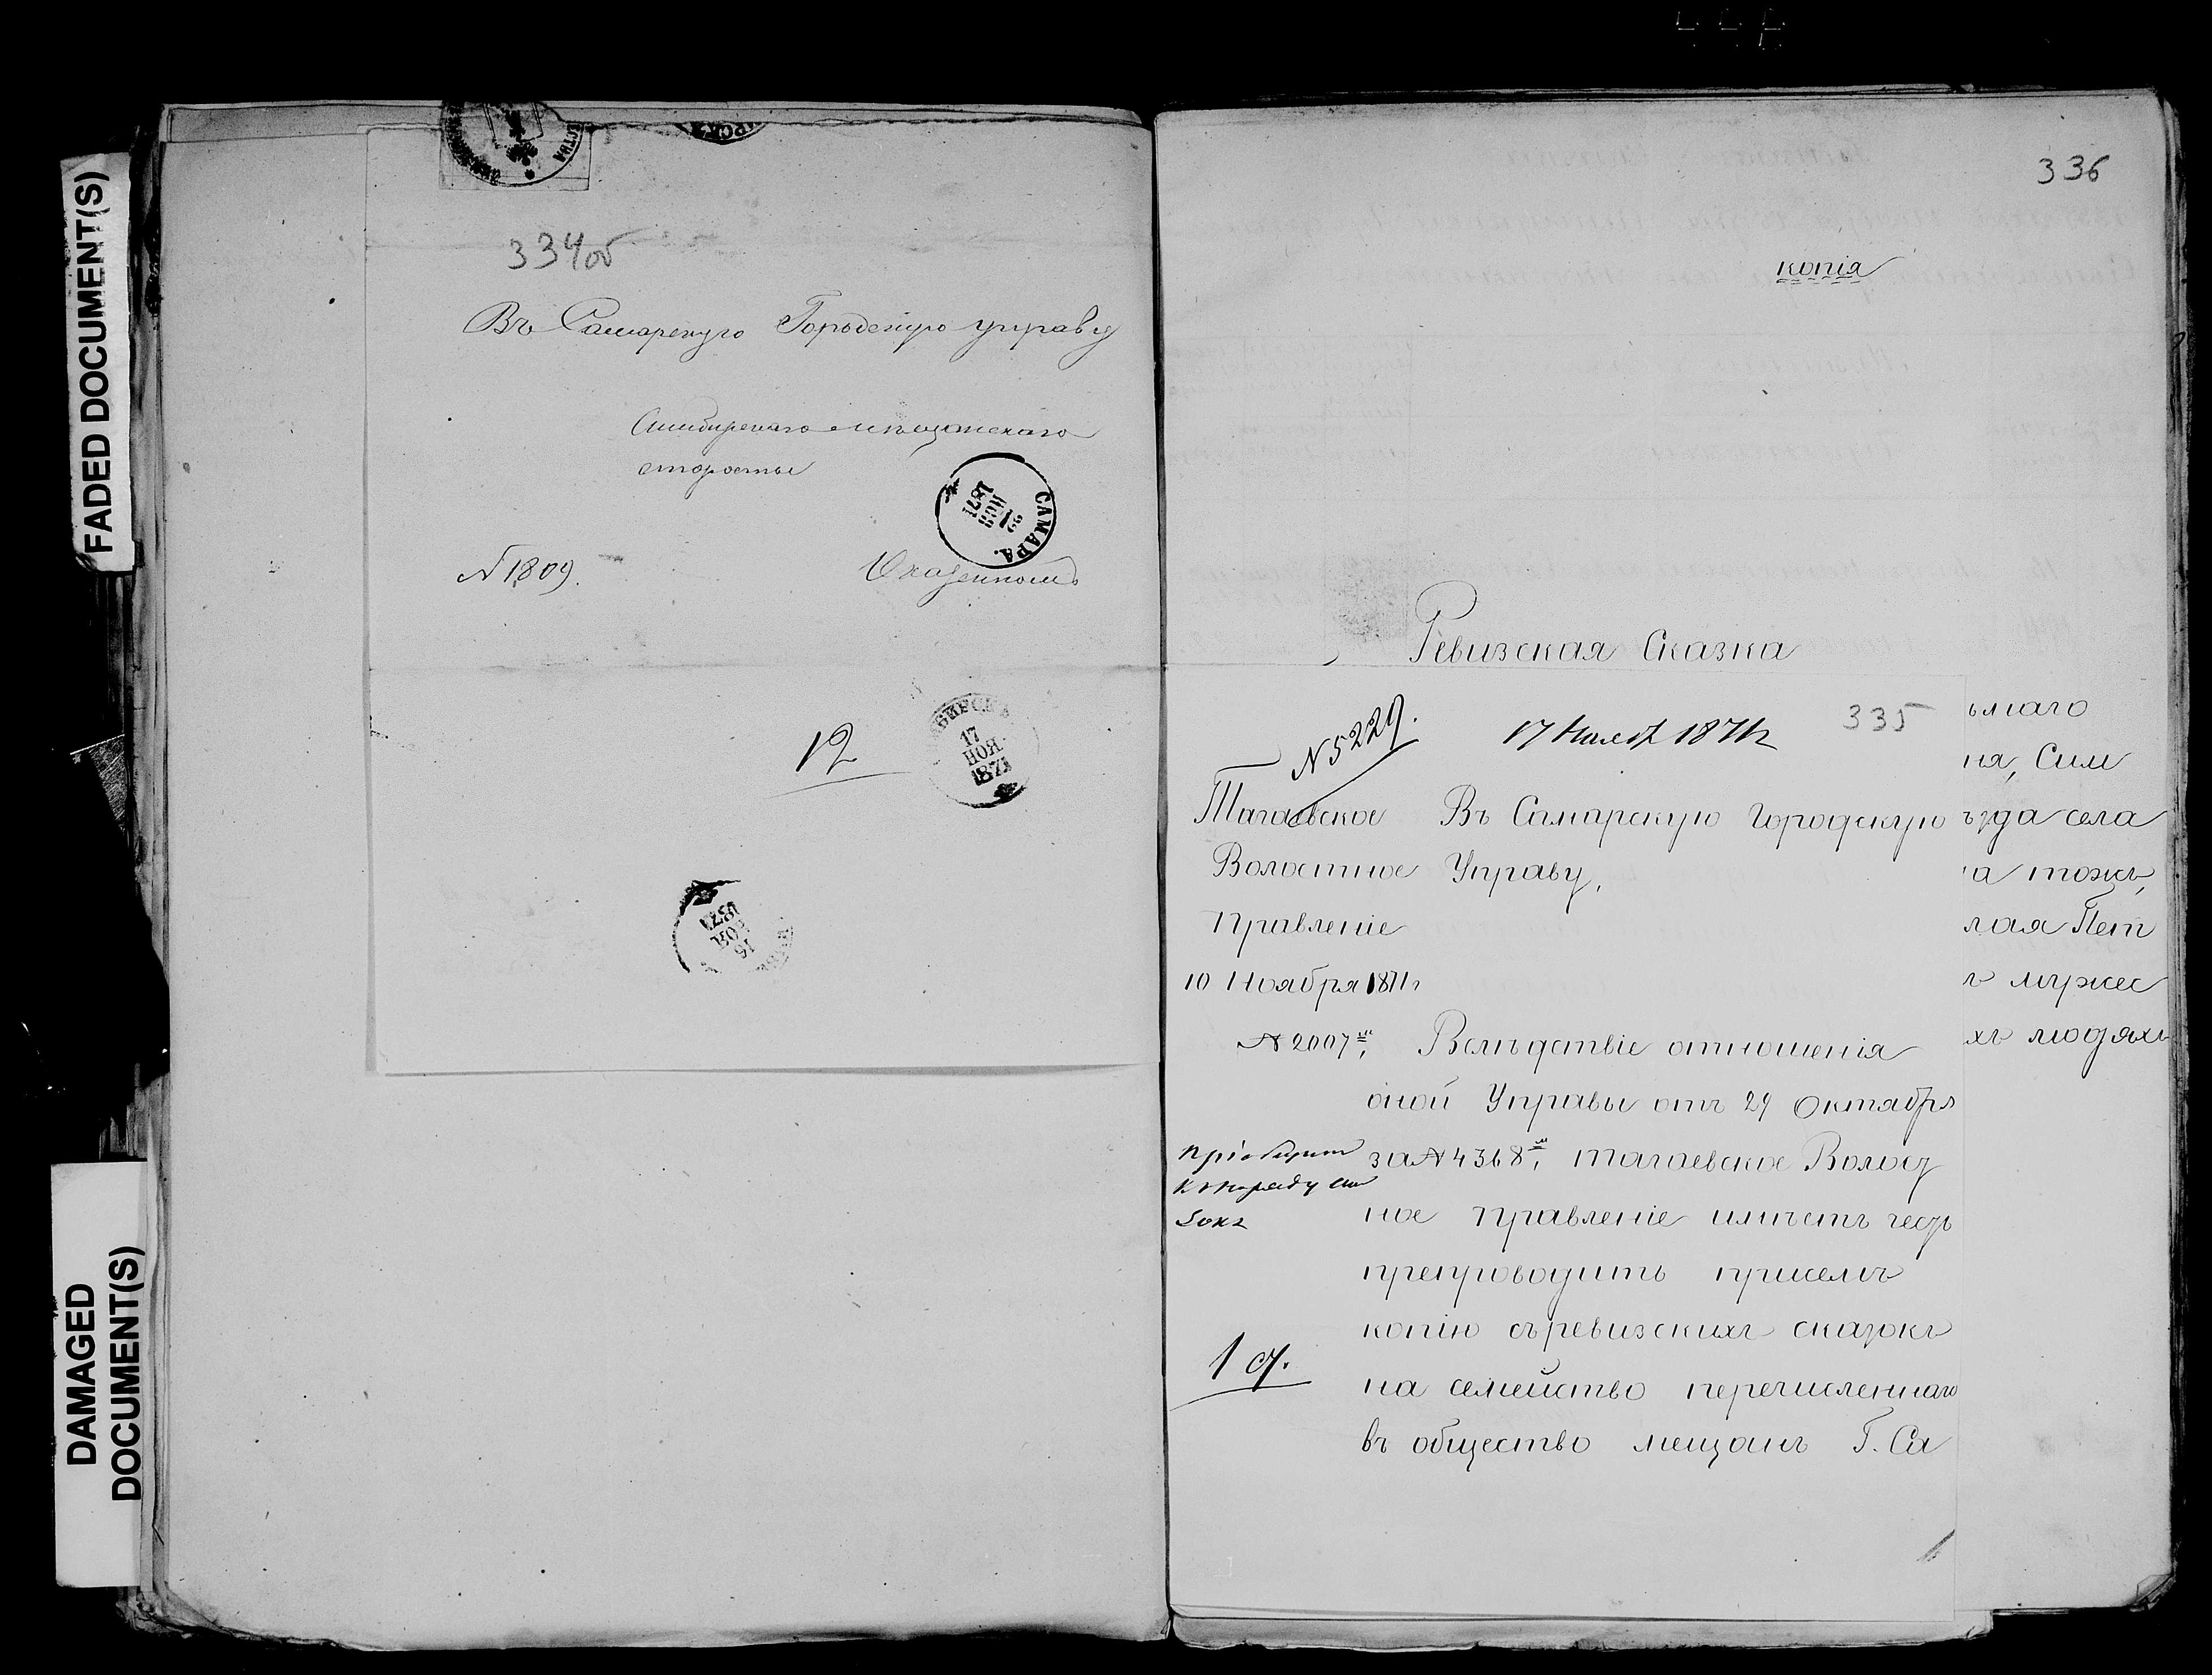 FADED DOCUMENT(S)
DAMAGED
DOCUMENT(S)
334об
Въ Самарскую Городскую управу
Симбирскаго мѣщанскаго
старосты
САМАРА.
22
НОЯ
1871
N 1809.
12
17
НОЯ
1871
16
НОЯ
1871
336
копія
Ревизская Сказка
335
N 5229.
17 Ноября 1871 г
Тагаевское
Волостное
Правленіе
10 Ноября 1871 г
N 2007й,
Въ Самарскую Городскую
Управу,
Вслѣдствіе отношенія
оной Управы отъ 29 Октября
за N 4368й, Тагаевское Волост
ное Правленіе имѣетъ честь
препроводить присемъ
копію съ ревизскихъ сказокъ
на семейство перечисленнаго
въ общество мещанъ Г. Са
1
ьмаго
ня, Сим
ѣзда села
а тожъ,
лая Пет
ъ мужес
хъ людяхъ